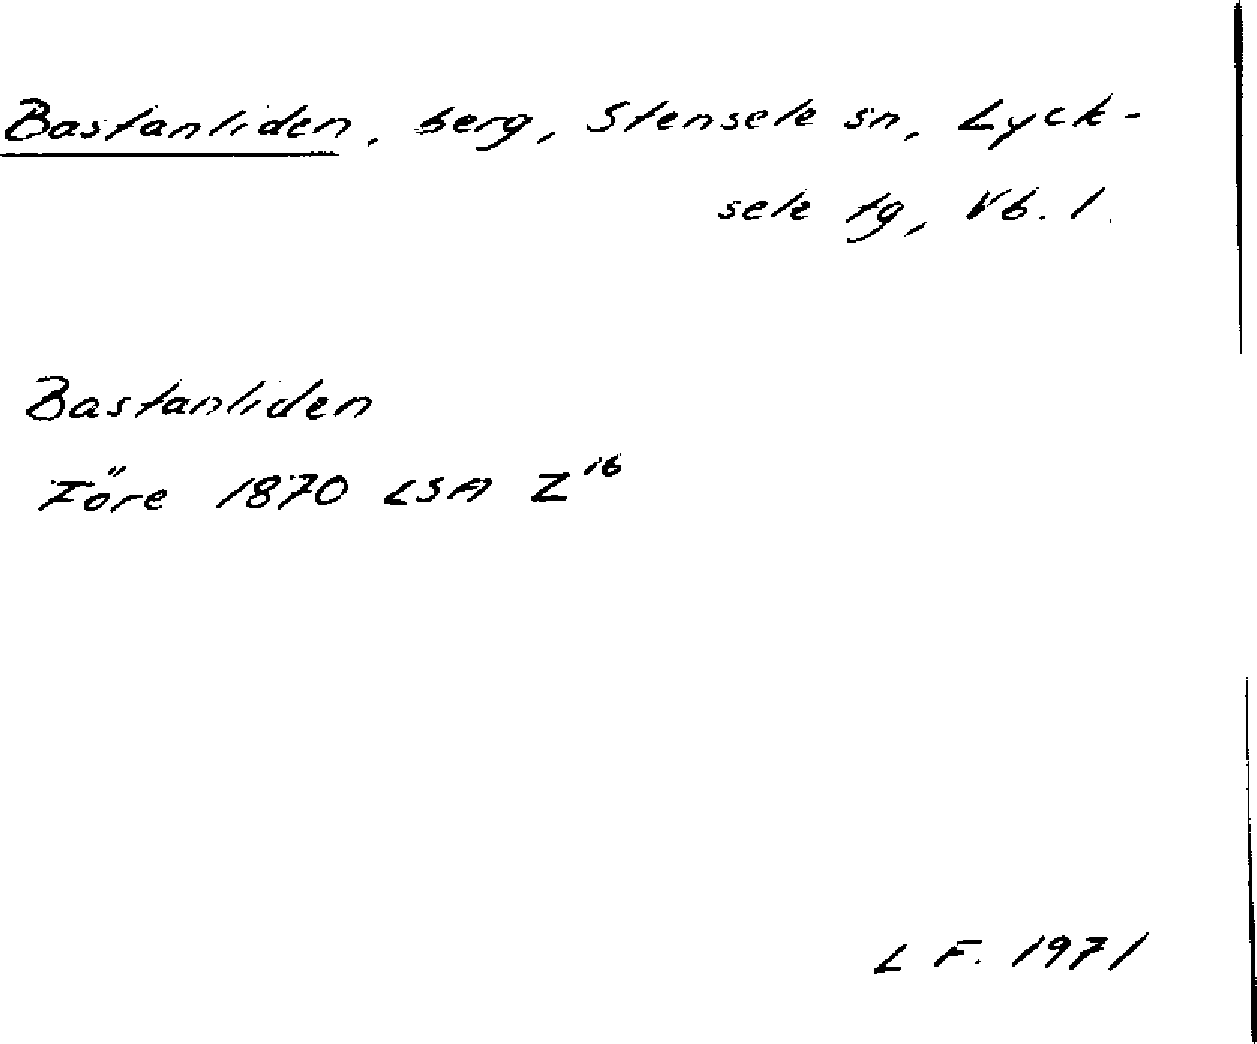 Bastanliden, berg, Stensele sn, Lyck-
sele tg, Vb. l.
Bastanliden
Före 1870 LSA Z¹⁶
L F. 1971